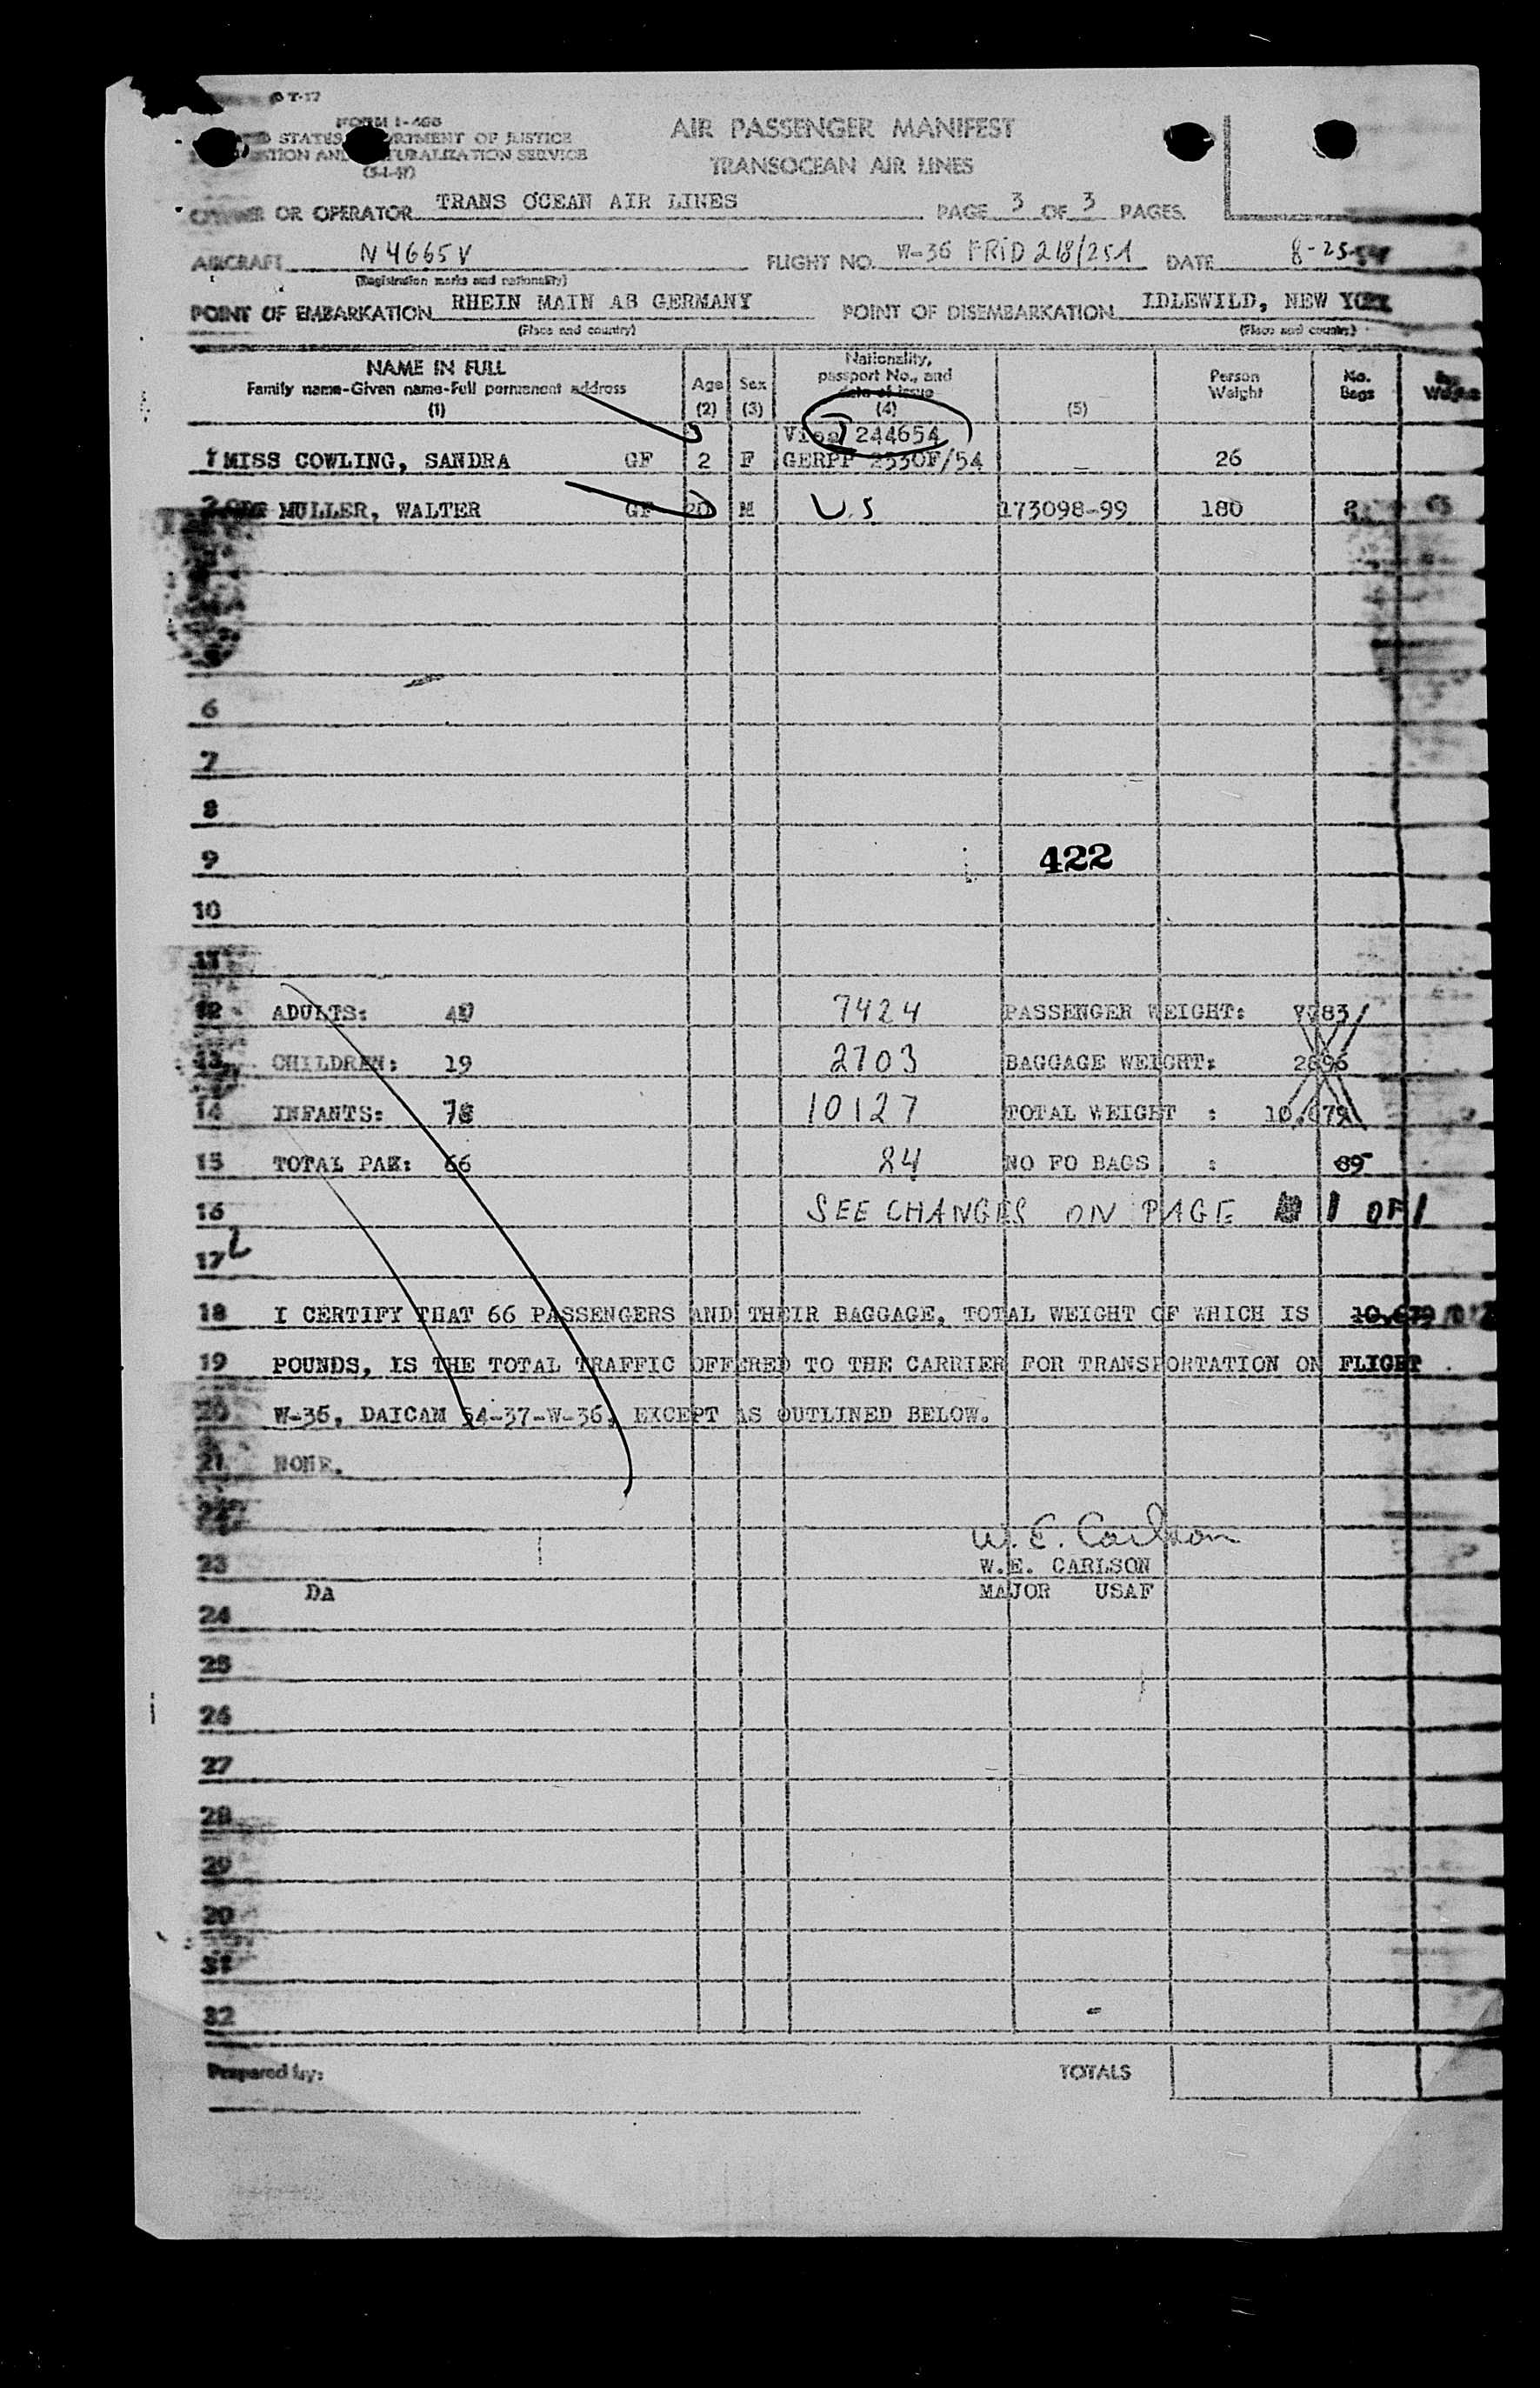 FORM I-466
STATES DEPARTMENT OF JUSTICE
AND NATURALIZATION SERVICE
AIR PASSENGER MANIFEST
TRANSOCEAN AIR LINES
OR OPERATOR TRANS OCEAN AIR LINES PAGE 3 OF 3 PAGES
AIRCRAFT N4665V FLIGHT NO. W-36 FRID 218/251 DATE 8-25-54
(Registration marks and nationality)
POINT OF EMBARKATION RHEIN MAIN AB GERMANY POINT OF DISEMBARKATION IDLEWILD, NEW YORK
(Place and country) (Place and country)
NAME IN FULL
Family name-Given name-Full permanent address
(1)
Age
(2)
Sex
(3)
Nationality,
passport No., and
date of issue
(4)
(5)
Person
Weight
No.
Bags
Bag
Weight
Visa 244654
1 MISS COWLING, SANDRA GF 2 F GERPP 2530F/54 26
2 MULLER, WALTER GF 20 M U.S 173098-99 180
6
7
8
9 422
10
11
12 ADULTS: 7424 PASSENGER WEIGHT:
13 CHILDREN: 19 2703 BAGGAGE WEIGHT: 2896
14 INFANTS: 10127 TOTAL WEIGHT : 10,679
15 TOTAL PAX: 66 84 NO FO BAGS : 89
16 SEE CHANGES ON PAGE 1 OF 1
17
18 I CERTIFY THAT 66 PASSENGERS AND THEIR BAGGAGE, TOTAL WEIGHT OF WHICH IS 10,679
19 POUNDS, IS THE TOTAL TRAFFIC OFFERED TO THE CARRIER FOR TRANSPORTATION ON FLIGHT
20 W-36, DAICAM 54-37-W-36, EXCEPT AS OUTLINED BELOW.
21 NONE.
W. E. Carlson
23 W.E. CARLSON
DA MAJOR USAF
24
25
26
27
28
29
30
31
32
Prepared by: TOTALS